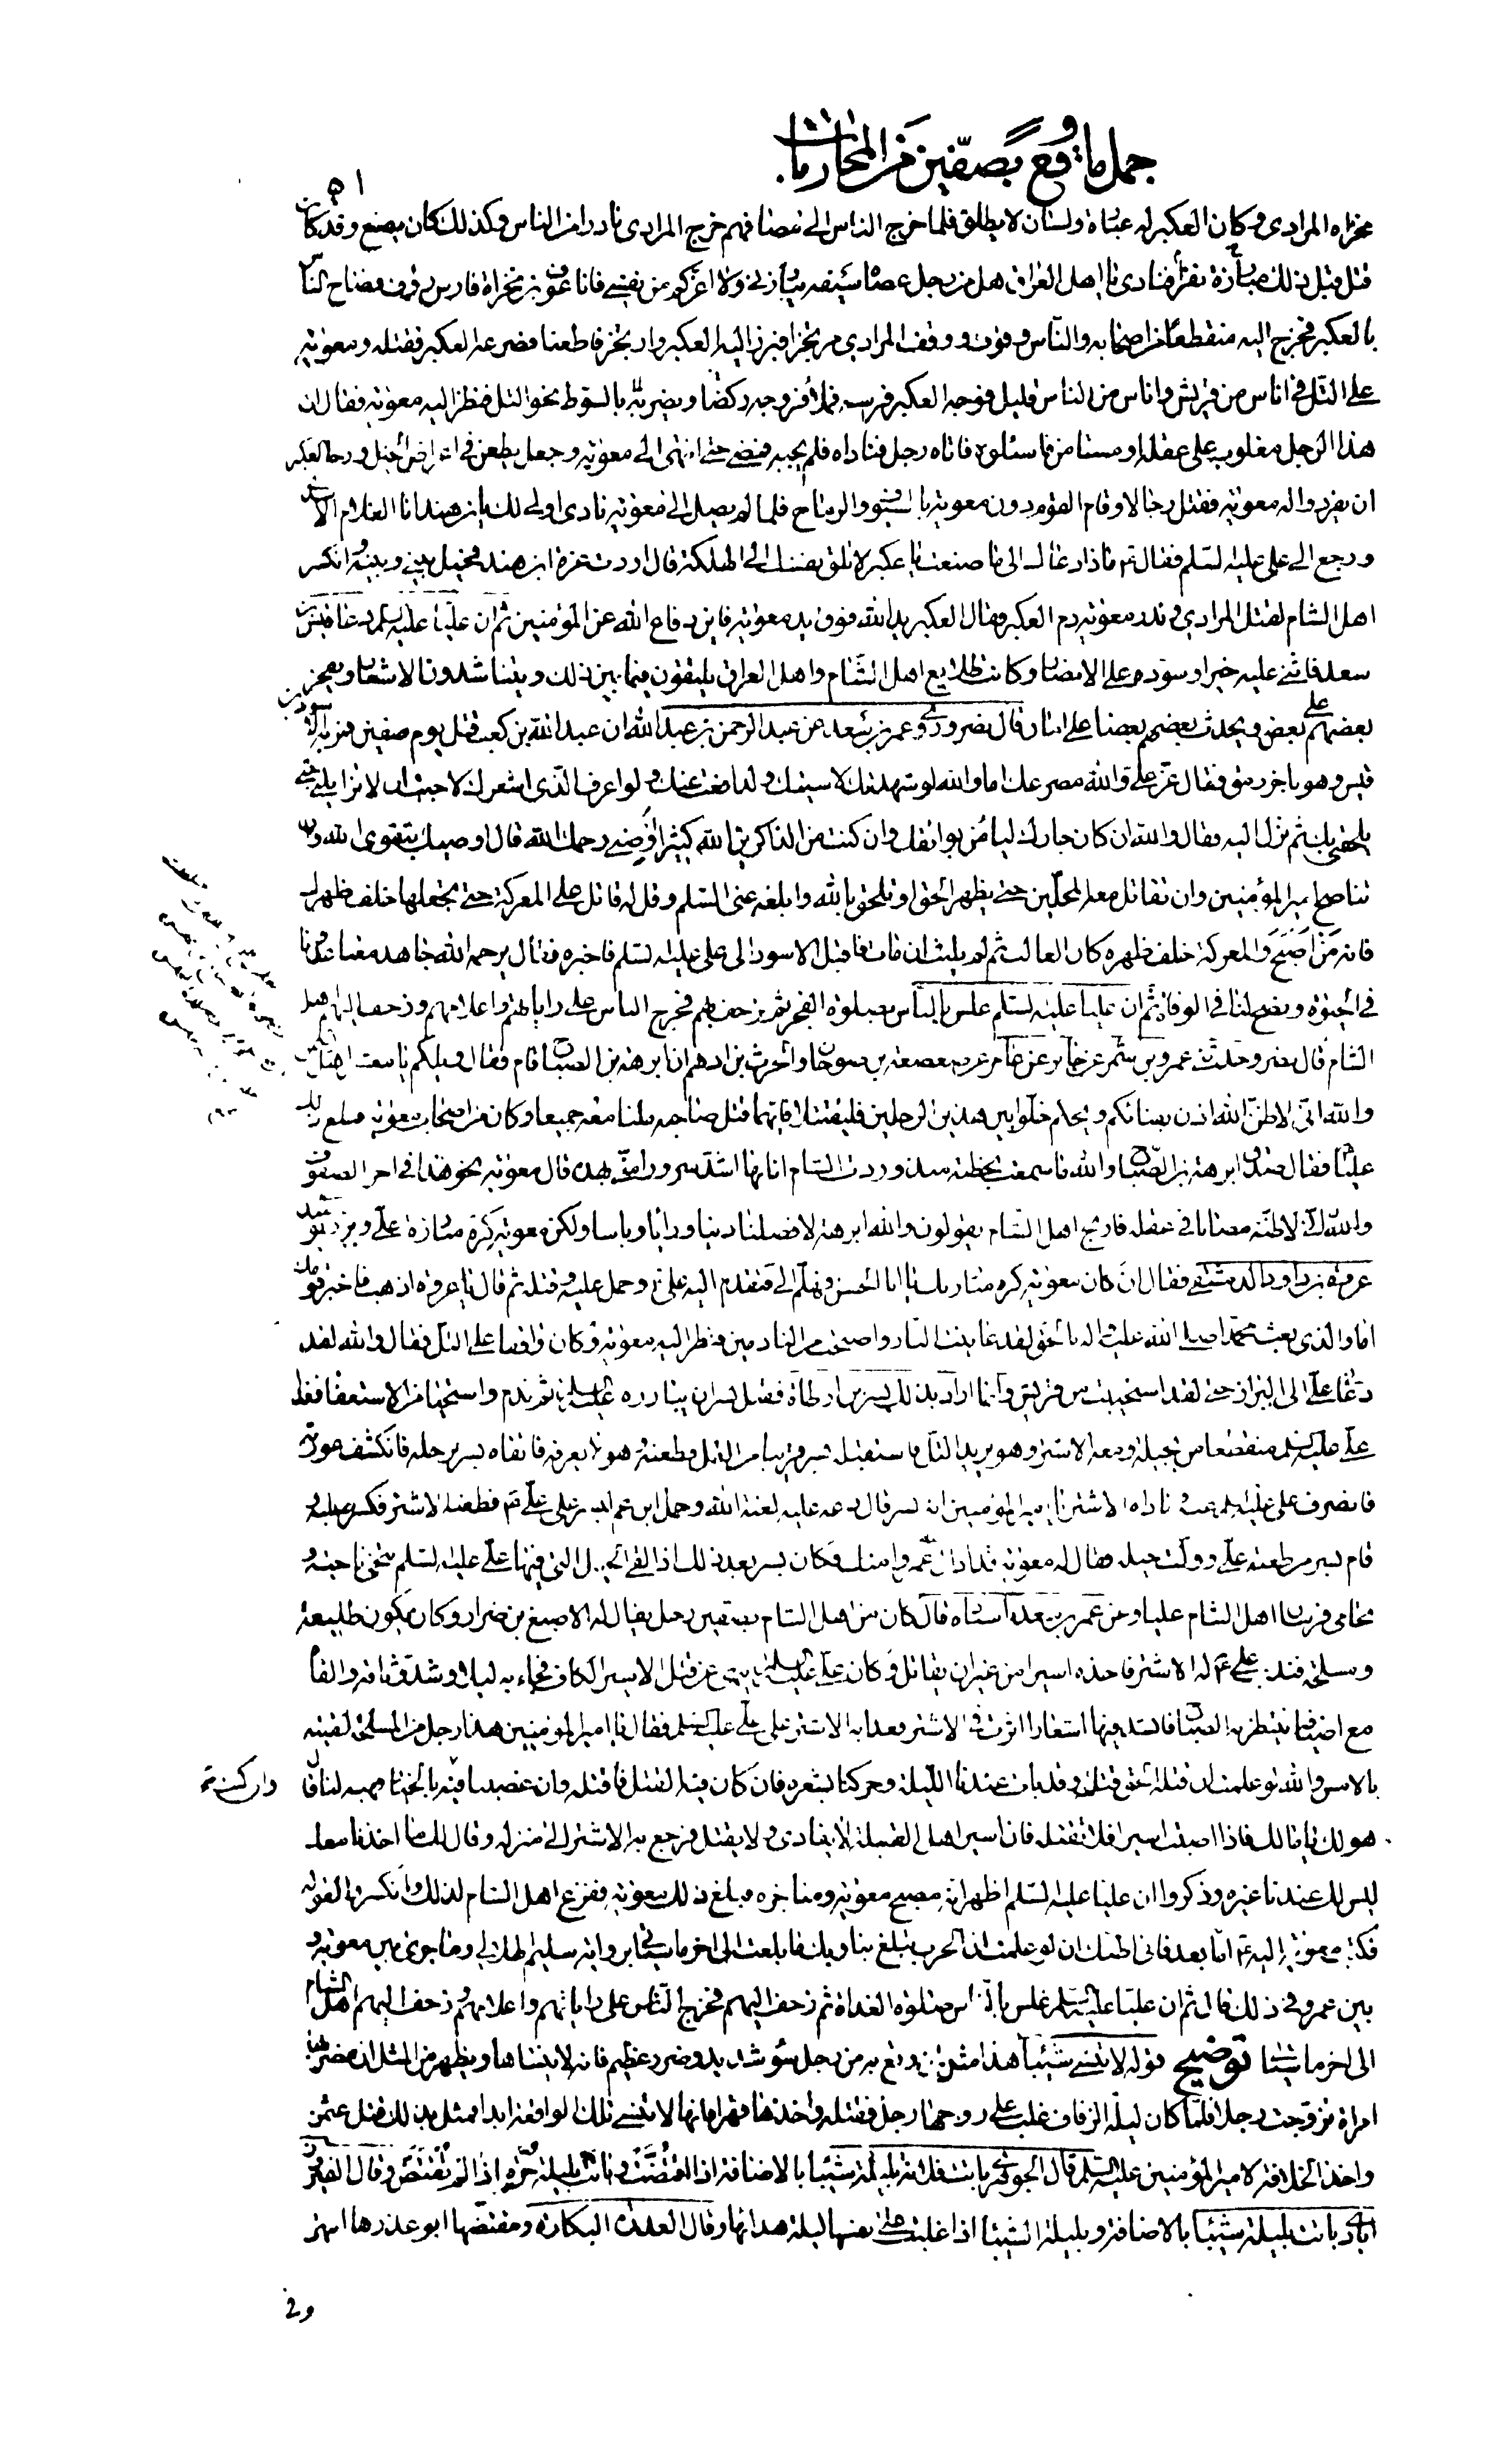 جمل ما وقع بصفين من المحاربات
٥١
مجزاه المرادي وكان العكبر له عبادة ولسان لا يطلق فلما خرج الناس الى مصافهم خرج المرادي نادرا من الناس وكذلك كان يصنع وقد كان
قتل قبل ذلك مبارزة نفرا فنادى يا اهل العراق هل من رجل عصاه سيفه يبارزني ولا اغركم من نفسي فانا عوف بن مجزاة فارس فصاح الناس
بالعكبر فخرج اليه منقطعا من اصحابه والناس وقوف ووقف المرادي فبرز اليه العكبر فاطعنا فصرعه العكبر فقتله ومعوية
على التل في اناس من قريش واناس من الناس قليل فوجه العكبر فرسه فملأ فروجه ركضا ويضربه بالسوط نحو التل فنظر اليه معوية فقال ان
هذا الرجل مغلوب على عقله او مستامن فاسئلوه فاتاه رجل فناداه فلم يجبه فمضى حتى انتهى الى معوية وجعل يطعن في اعراض الخيل ورجا العكبر
ان يفردوا له معوية فقتل رجالا وقام القوم دون معوية بالسيوف والرماح فلما لم يصل الى معوية نادى اولى لك يابن هند انا الغلام الاسدي
ورجع الى علي عليه السلم فقال ماذا دعاك الى ما صنعت يا عكبر لا تلق نفسك الى الهلكة قال اردت غرة ابن هند فحيل بيني وبينه وانكسر
اهل الشام لقتل المرادي ونذر معوية دم العكبر فقال العكبر يد الله فوق يد معوية فاين دفاع الله عن المؤمنين ثم ان عليا عليه السلم دعا قيس بن
سعد فاثنى عليه خيرا وسوده على الانصار وكانت طلايع اهل الشام واهل العراق يلتقون فيما بين ذلك ويتناشدون الاشعار ويفخر
بعضهم على بعض ويحدث بعضهم بعضا على امان قال نصر وروى عمر بن سعد عن عبد الرحمن بن عبد الله ان عبد الله بن كعب قتل يوم صفين فمر به الاسود بن
قيس وهو باخر رمق فقال عز علي والله مصرعك اما والله لو شهدتك لآسيتك ولدافعت عنك ولو اعرف الذي اشعرك لاحببت ان لا يزايلني حتى
يلحقني بك ثم نزل اليه وقال والله ان كان جارك ليامن بوائقك وان كنت من الذاكرين الله كثيرا اوصني رحمك الله قال اوصيك بتقوى الله وان
تناصح امير المؤمنين وان تقاتل معه المحلين حتى يظهر الحق او تلحق بالله وابلغه عني السلم وقل له قاتل على المعركة حتى تجعلها خلف ظهرك
فانه من اصبح والمعركة خلف ظهره كان الغالب ثم لم يلبث ان مات فاقبل الاسود الى علي عليه السلم فاخبره فقال يرحمه الله جاهد معنا عدونا
في الحيوة ونصح لنا في الوفاة ثم ان عليا عليه السلم غلس بالناس بصلوة الفجر ثم زحف بهم فخرج الناس على راياتهم واعلامهم وزحف اليهم اهل
الشام قال نصر وحدثني عمرو بن شمر عن جابر عن عامر عن صعصعة بن صوحان والحرث بن ادهم ان ابرهة بن الصباح قام فقال ويلكم يا معشر اهل اليمن
والله اني لاظن الله اذن بفنائكم ويحكم خلوا بين هذين الرجلين فليقتتلا فايهما قتل صاحبه ملنا معه جميعا وكان من اصحاب معوية فبلغ ذلك
عليا فقال صدق ابرهة بن الصباح والله ما سمعت بخطبة منذ وردت الشام انا بها اشد سرورا مني بهذه قال معوية نحو هذا في اخر الصفوف
والله اني لاظنه مصابا في عقله فاقبل اهل الشام يقولون والله ابرهة لافضلنا دينا ورايا وباسا ولكن معوية كره مبارزة علي وبرز يومئذ
عروة بن داود الدمشقي فقال ان كان معوية كره مبارزتك يا ابا الحسن فهلم الي فتقدم اليه علي وحمل عليه وقتله ثم قال يا عروة اذهب فاخبر قومك
اما والذي بعث محمدا صلى الله عليه واله بالحق لقد عاينت النار واصبحت من النادمين فنظر اليه معوية وكان واقفا على التل فقال والله لقد
دعا علي الى البراز حتى لقد استحييت من قريش وانما اراد بذلك بسر بن ارطاة
علي عليه السلم منقطعا من خيله ومعه الاشتر وهو يريد التل فاستقبله بسر قريبا من التل فطعنه وهو لا يعرفه فاتقاه بسر برجله فانكشف عورته
فانصرف علي عليه السلم عنه وناداه الاشتر يا امير المؤمنين انه بسر قال دعه عليه لعنة الله وحمل ابن عم لبسر على علي فطعنه الاشتر فكسر صلبه
قام بسر من طعنة علي وولت خيله فقال له معوية فكان بسر بعد ذلك اذا لقي الخيل التي فيها علي عليه السلم تنحى ناحية و
تحامى فرسان اهل الشام عليا وعن عمر بن سعد باسناده قال كان من اهل الشام بصفين رجل يقال له الاصبغ بن ضرار وكان يكون طليعة
ومسلحة فندب علي له الاشتر فاخذه اسيرا من غير ان يقاتل وكان علي عليه السلم ينهى عن قتل الاسير الكاف فجاء به ليلا وشد وثاقه والقاه
مع اضيافه ينتظر به الصباح فانشد فيها اشعارا اثرت في الاشتر فغدا به الاشتر على علي عليه السلم فقال يا امير المؤمنين هذا رجل من المسلحة لقيته
بالامس والله لو علمت ان قتله الحق قتلته وقد بات عندنا الليلة وحركنا بشعره فان كان فيه القتل فاقتله وان غضبنا فيه وان كنت فيه بالخيار فهبه لنا قال
هو لك يا مالك فاذا اصبت اسيرا فلا تقتله فان اسير اهل القبلة لا يفادى ولا يقتل فرجع به الاشتر الى منزله وقال لك ما اخذنا معك
ليس لك عندنا غيره وذكروا ان عليا عليه السلم اظهر انه مصبح معوية ومناجزه فبلغ ذلك معوية ففزع اهل الشام لذلك وانكسروا لقوله
فكتب معوية اليه اما بعد فاني اظنك ان لو علمت ان الحرب تبلغ بنا وبك ما بلغت الى اخر ما سياتي برواية سليم الهلالي وما جرى بين معوية و
بين عمرو في ذلك قال ثم ان عليا عليه السلم غلس بالناس صلوة الغداة ثم زحف اليهم فخرج الناس على راياتهم واعلامهم وزحف اليهم اهل الشام
الى اخر ما سياتي توضيح قوله لا تنسى شيبا هذا مثل وقع به من رجل سوء شديد وضرر عظيم فانه لا ينساها ويظهر من المثل ان
امراة تزوجت رجلا فلما كان ليلة الزفاف غلب على زوجها رجل فقتله واخذها قهرا فانها لا تنسى تلك الواقعة ابدا فمثل بذلك قتل عثمن
واخذ الخلافة لامير المؤمنين عليه السلم قال الجوهري باتت فلانة بليلة شيبا بالاضافة اذا افتضت وباتت بليلة حرة اذا لم تفتض وقال الفيروز
آبادي باتت بليلة شيبا بالاضافة وبليلة الشيبا اذا غلبت على نفسها ليلة هدائها وقال العذرة البكارة ومفتضها ابو عذرها
وفي